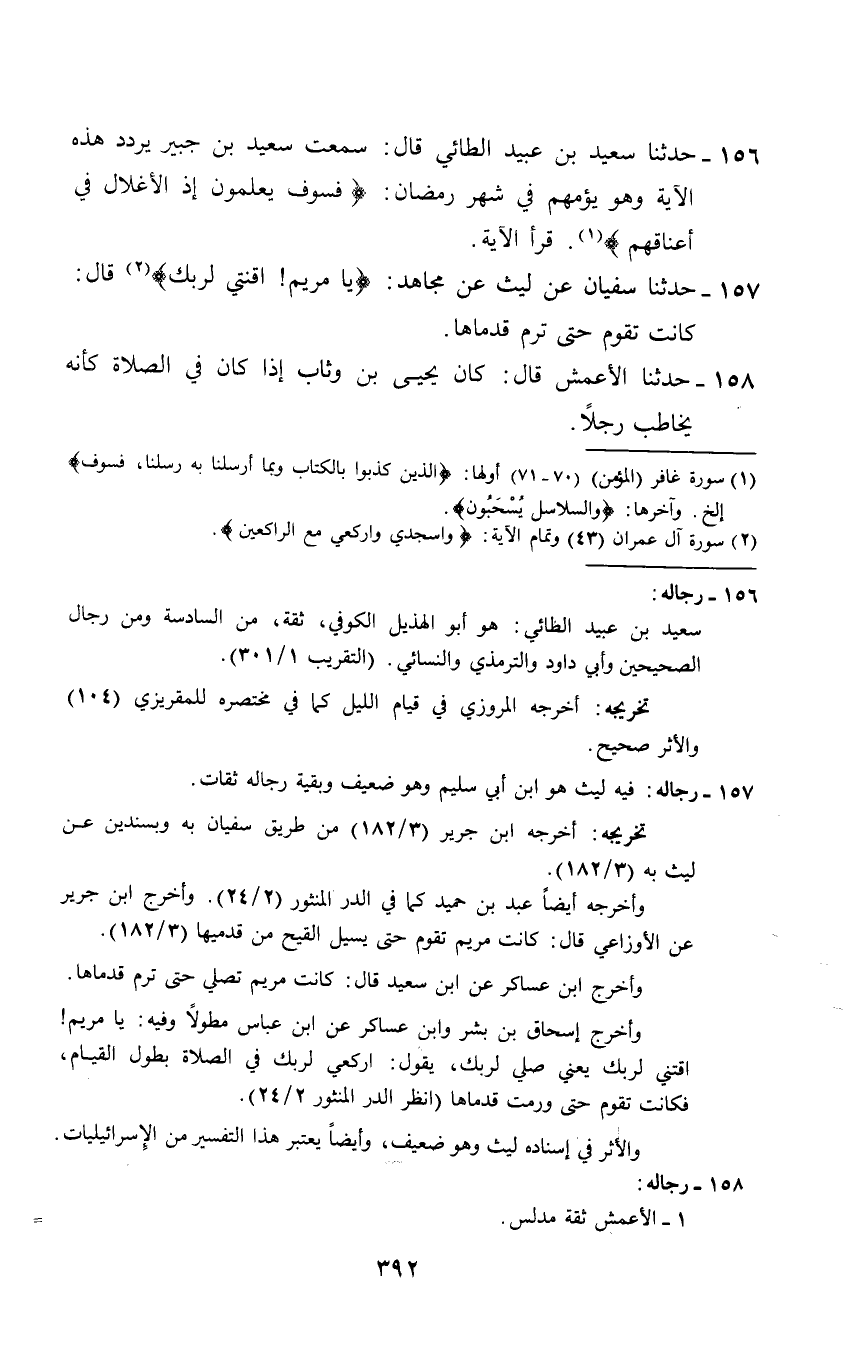 ١٥٦ - حدثنا سعيد بن عبيد الطائي قال: سمعت سعيد بن جبير يردد هذه
الآية وهو يؤمهم في شهر رمضان: ﴿ فسوف يعلمون إذ الأغلال في
أعناقهم ﴾(١). قرأ الآية.
١٥٧ - حدثنا سفيان عن ليث عن مجاهد: ﴿يا مريم! اقنتي لربك﴾(٢) قال:
كانت تقوم حتى ترم قدماها.
١٥٨ - حدثنا الأعمش قال: كان يحيى بن وثاب إذا كان في الصلاة كأنه
يخاطب رجلاً.
(١) سورة غافر (المؤمن) (٧٠ - ٧١) أولها: ﴿الذين كذبوا بالكتاب وبما أرسلنا به رسلنا، فسوف﴾
إلخ. وآخرها: ﴿والسلاسل يُسْحَبُون﴾.
(٢) سورة آل عمران (٤٣) وتمام الآية: ﴿ واسجدي واركعي مع الراكعين ﴾.
١٥٦ - رجاله:
سعيد بن عبيد الطائي: هو أبو الهذيل الكوفي، ثقة، من السادسة ومن رجال
الصحيحين وأبي داود والترمذي والنسائي. (التقريب ٣٠١/١).
تخريجه: أخرجه المروزي في قيام الليل كما في مختصره للمقريزي (١٠٤)
والأثر صحيح.
١٥٧ - رجاله: فيه ليث هو ابن أبي سليم وهو ضعيف وبقية رجاله ثقات.
تخريجه: أخرجه ابن جرير (١٨٢/٣) من طريق سفيان به وبسندين عن
ليث به (١٨٢/٣).
وأخرجه أيضاً عبد بن حميد كما في الدر المنثور (٢٤/٢). وأخرج ابن جرير
عن الأوزاعي قال: كانت مريم تقوم حتى يسيل القيح من قدميها (١٨٢/٣).
وأخرج ابن عساكر عن ابن سعيد قال: كانت مريم تصلي حتى ترم قدماها.
وأخرج إسحاق بن بشر وابن عساكر عن ابن عباس مطولاً وفيه: يا مريم!
اقتني لربك يعني صلي لربك، يقول: اركعي لربك في الصلاة بطول القيام،
فكانت تقوم حتى ورمت قدماها (انظر الدر المنثور ٢٤/٢).
والأثر في إسناده ليث وهو ضعيف، وأيضاً يعتبر هذا التفسير من الإسرائيليات.
١٥٨ - رجاله:
١ - الأعمش ثقة مدلس.
=
٣٩٢